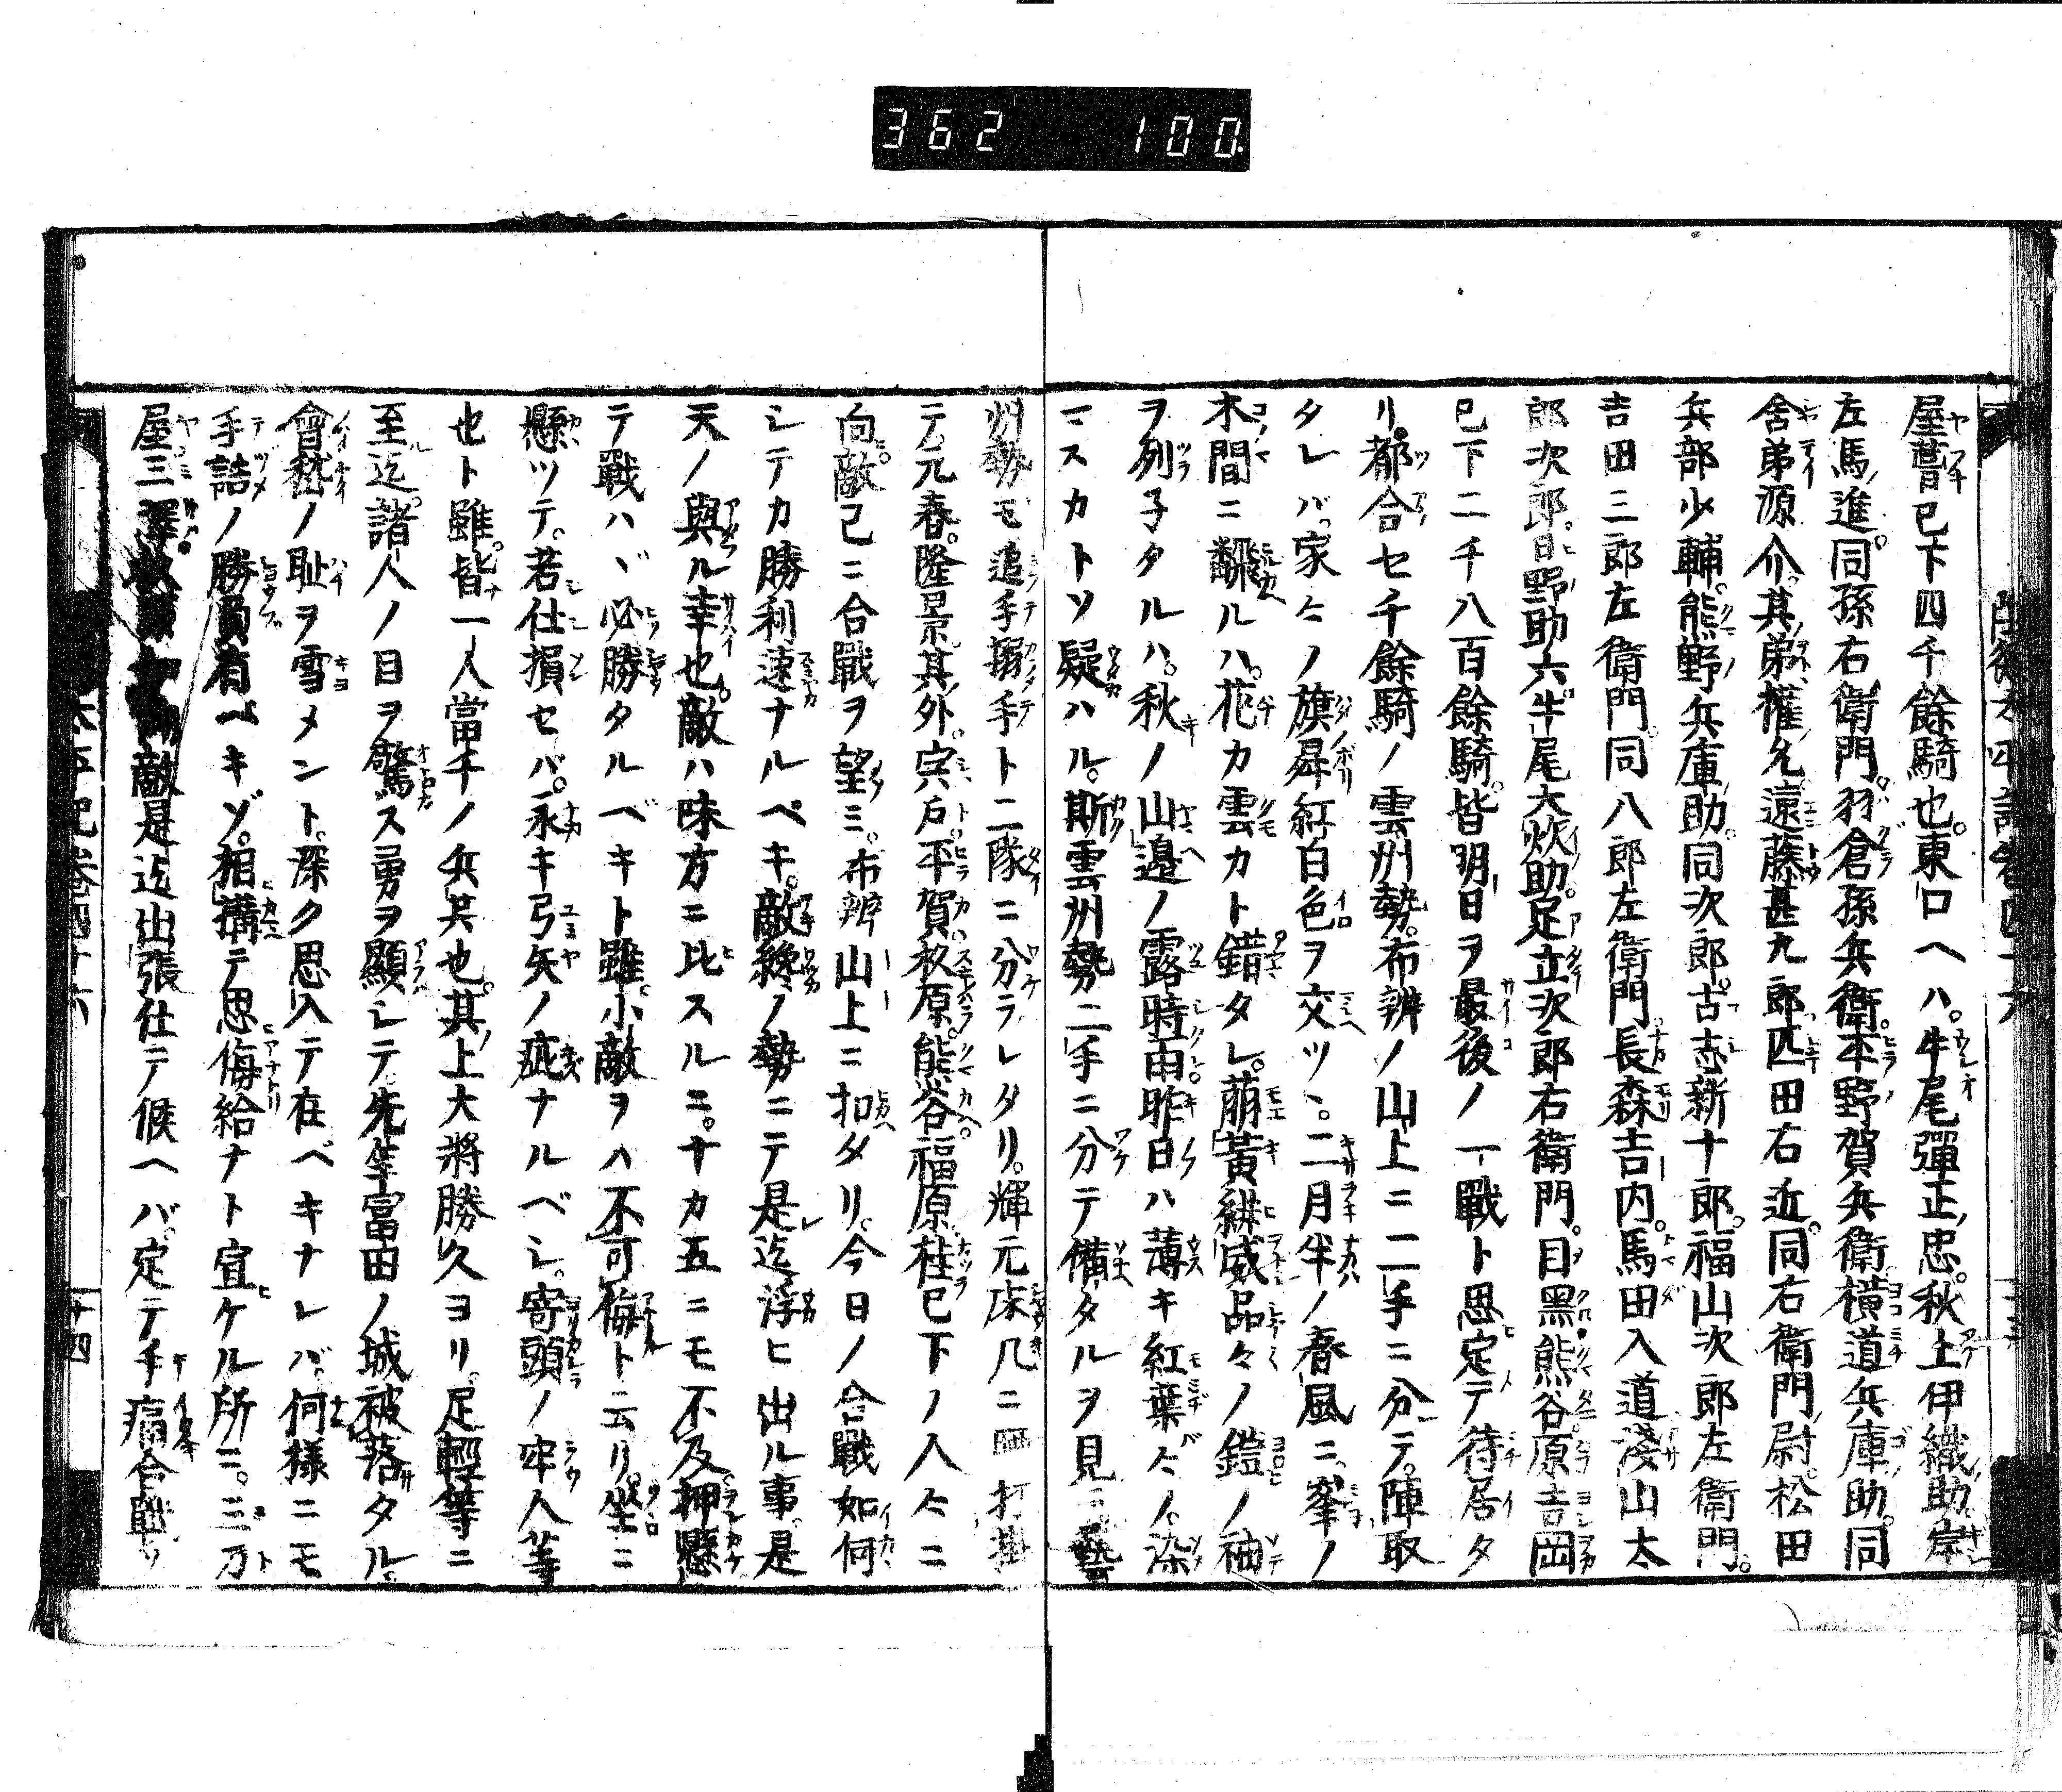 362 100.
屋葺已下四千餘騎也。東口ヘハ。牛尾彈正忠。秋上伊織助。岸
左馬進。同孫右衛門。羽倉孫兵衛。平野賀兵衛。横道兵庫助。同
舎弟源介。其弟權允。遠藤甚九郎。疋田右近。同右衛門尉。松田
兵部少輔。熊野兵庫助。同次郎。古志新十郎。福山次郎左衛門。
吉田三郎左衛門。同八郎左衛門。長森吉内。馬田入道。淺山太
郎次郎。日野助六。牛尾大炊助。足立次郎右衛門。目黒。熊谷。原。吉岡
已下二千八百餘騎。皆明日ヲ最後ノ一戰ト思定テ待居タ
リ。都合セ千餘騎ノ雲州勢。布辨ノ山上ニ二手ニ分テ。陣取
タレバ。家々ノ旗昇紅白色ヲ交ツヽ。二月半ノ春風ニ。峯ノ
木間ニ飜ルハ。花カ雲カト錯タレ。萠黃緋威品々ノ鎧ノ袖
ヲ列子タルハ。秋ノ山邉ノ露時雨。昨日ハ薄キ紅葉々ノ。染
マスカトソ疑ハル。斯雲州勢二手ニ分テ備タルヲ見テ。藝
州勢モ追手搦手ト二隊ニ分ラレタリ。輝元床几ニ打掛
テ。元春。隆景。其外。宍戸。平賀。杦原。熊谷。福原。桂已下ノ人々ニ
向。敵已ニ合戰ヲ望ミ。布辨山上ニ扣タリ。今日ノ合戰如何
シテカ勝利速ナルペキ。敵纔ノ勢ニテ是迄浮ヒ出ル事。是
天ノ與ル幸也。敵ハ味方ニ比スルニ。十カ五ニモ不及。押懸
テ戰ハヾ必勝タルベキト雖。小敵ヲハ不可侮ト云リ。坐ニ
懸ツテ。若仕損セバ。永キ弓矢ノ疵ナルベシ。寄頭ノ牢人等
也ト雖。皆一人當千ノ兵共也。其上大將勝久ヨリ。足輕等ニ
至迄。諸人ノ目ヲ驚ス勇ヲ顯シテ。先年冨田ノ城被落タル。
會嵇ノ耻ヲ雪メント。深ク思入テ在ベキナレバ。何樣ニモ
手詰ノ勝負有ベキゾ。相搆テ思侮給ナト宣ケル所ニ。三刀
屋三澤敵是迄出張仕テ候ヘバ。定テ手痛合戰ソ
十四